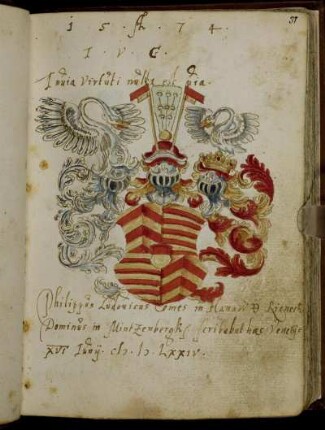 31
1 5 . A . 7 4 .
I . V . G .
Invia Virtuti nulla est via .
Philippus Ludovicus Comes in Hanaw & Rieneck
Dominus in Mintzenbergk scribebat hæc Venetijs
XVI Junij . CIↃ . IↃ . LXXIV .